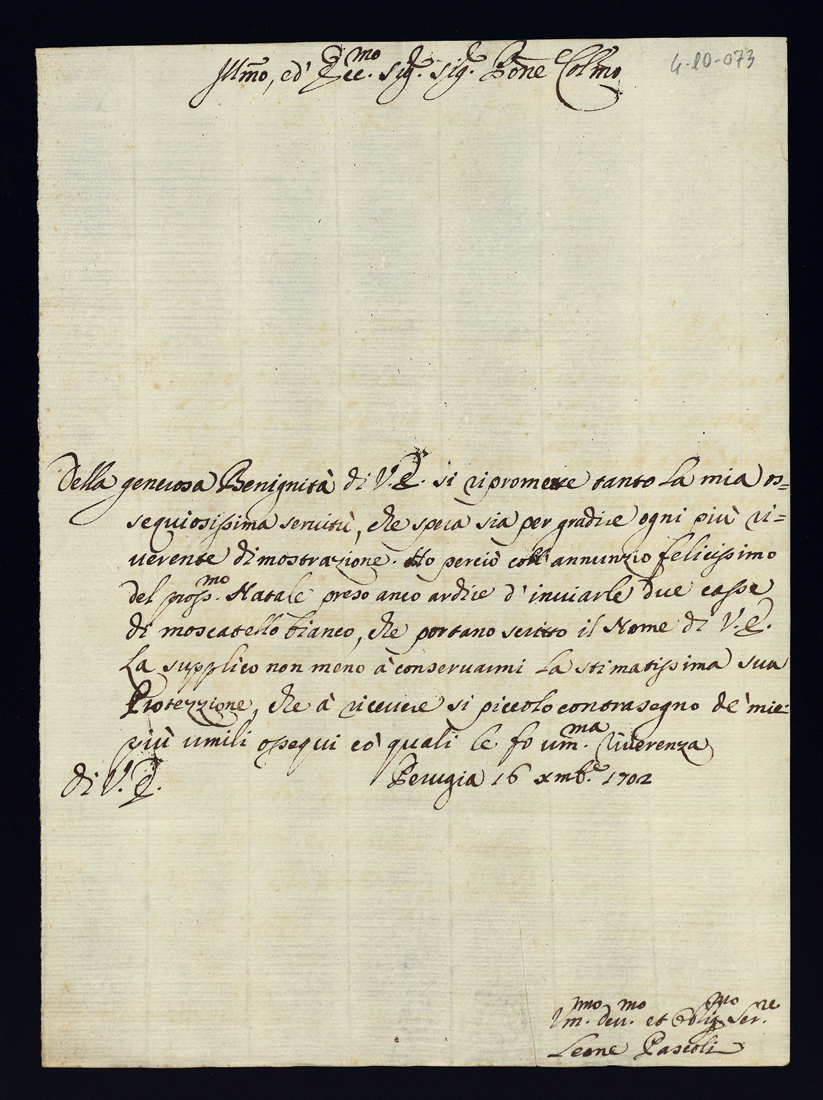 Jll̃mo, ed' Ecc.mo Sig.r Sig.r Pr̃one Col̃mo
4-10-073
Della generosa Benignità di V.E. si ripromette tanto la mia os=
sequiosissima servitù, che spera sia per gradire ogni più ri=
verente dimostrazione. Ho perciò coll'annunzio felicissimo
del pross.mo Natale preso anco ardire d'inviarle due casse
di moscatello bianco, che portano scritto il Nome di V.E.
La supplico non meno à conservarmi la stimatissima sua
Protezzione, che à ricevere si piccolo contrasegno de' miei
più umili ossequi co' quali le fò um.ma riverenza
di V.E. Perugia 16 Xmb.e 1702
Um.mo dev.mo et Oblig.mo Ser.re
Leone Pascoli